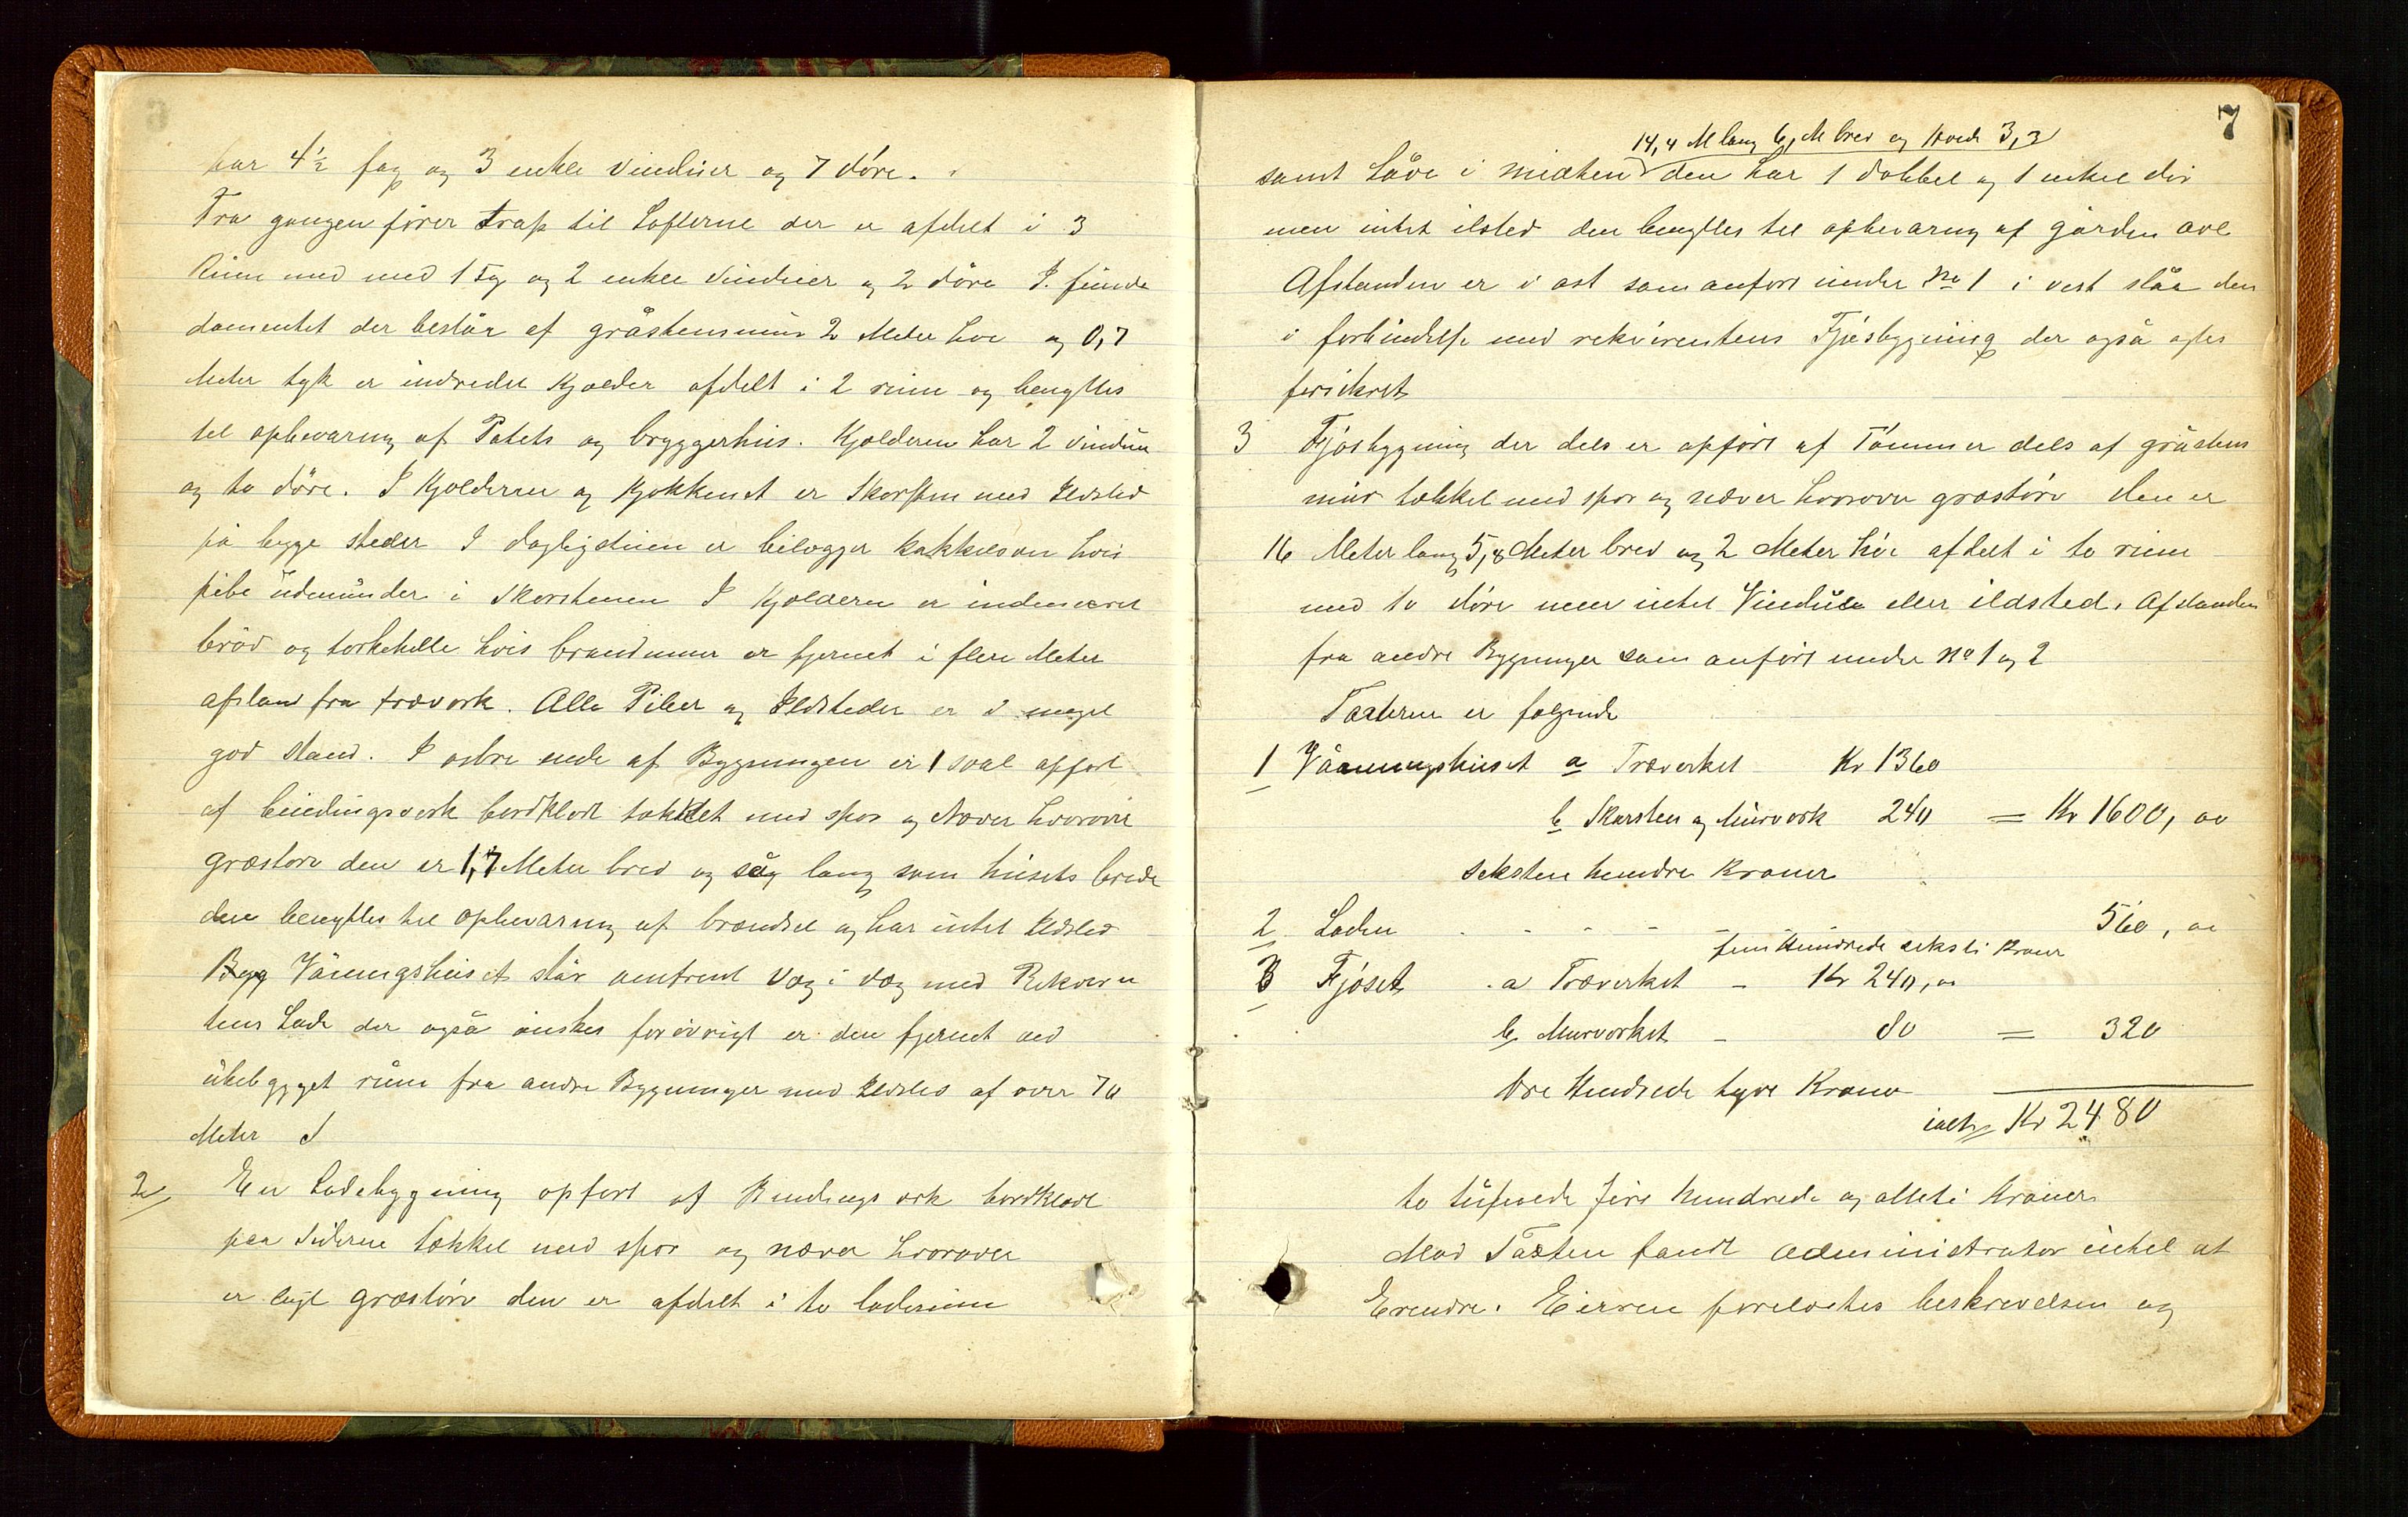 har 4½ fag og 3 enkle Vinduer og 7 døre.
Fra gangen fører trap til Lofterne der er afdelt i 3
Rum med med 1 Fag og 2 enkle Vinduer og 2 døre I funda
damentet der består af gråstensmur 2 Meter høi og 0,7
Meter tyk er indredet Kjælder afdelt i 2 rum og benyttes
til opbevaring af Potets og bryggerhus. Kjælderen har 2 vinduer
og to døre. I Kjælderen og Kjøkkenet er Skorsten med Ildsted
på begge steder I dagligstuen er bilægger kakkelovn hvis
pibe udmunder i Skorstenen I Kjælderen er indmuret
brød og tørkehelle hvis brandmur er fjernet i flere Meter
afstand fra træværk. Alle Piber og Ildsteder er i meget
god stand. I østre ende af Bygningen er 1 sval opført
af bindingsverk bordklædt tækket med spon og Næver hvorover
græstørv den er 1,7 Meter bred og såg lang som husets brede
den benyttes til opbevaring af brændsel og har intet Ildsted
Bygg Våningshuset står omtrent Væg i væg med Rekviren
tens Lade der også ønskes forøvrigt er den fjernet ved
ubebygget rum fra andre Bygninger med Ildsted af over 70
Meter I
2 En Ladebygning opført af Bindingsverk bordklædt
paa Siderne tækket med spon og næver hvorover
er lagt græstørv den er afdelt i to laderum
7
14,4 M lang 6, M bred og Høide 3,3
samt Låve i midten den har 1 dobbel og 1 enkel dør
men intet ilsted den benyttes til opbevaring af gården avl
Afstanden er i ost som anført under No 1 i vest slåa den
i forbindelse med rekvirentens Fjøsbygning der også øges
forsikret
3 Fjøsbygning der dels er opført af Tømmer dels af gråstens
mur tækket med spon og næver hvorover græstørv den er
16 Meter lang 5,8 Meter bred og 2 Meter høi afdelt i to rum
med to døre men intet Vindue eller ildsted. Afstanden
fra andre Bygninger som anført under No 1 og 2
Taxterne er følgende
1 Våaningshuset a Træverket Kr 1360
b Skorsten og Murverk 240 = Kr 1600, oo
seksten hundre Kroner
2 Laden - - - - - 560, oo
fem Hundrede seksti Kroner
3 Fjøset . a Træverket - Kr 240, oo
b Murverket - 80 = 320
tre Hundrede tyve Kroner
ialt Kr 2480
to tusende fire hundrede og otteti Kroner
Mod Taxten fandt administrator intet at
Erendre. Eieren forelæstes beskrivelsen og